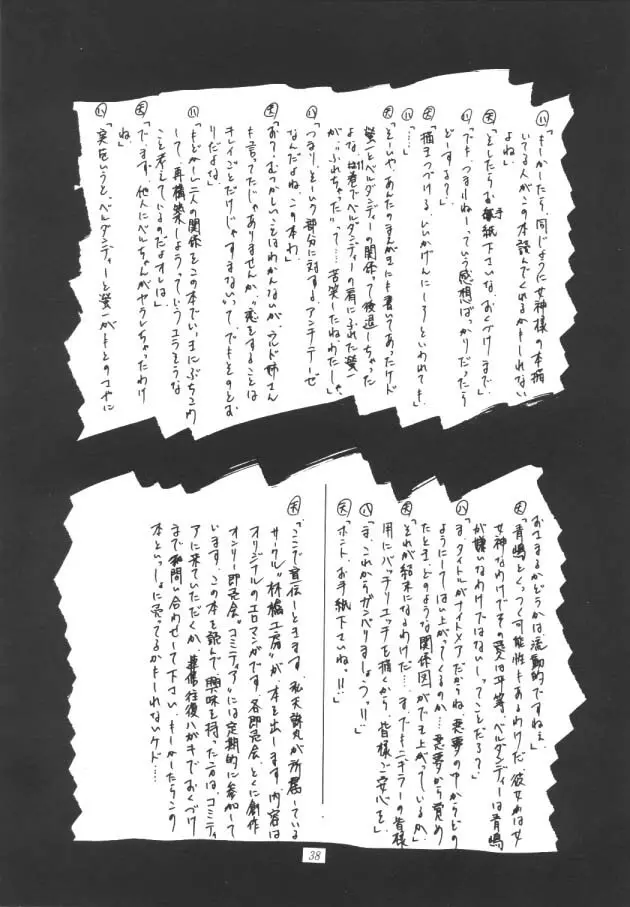 ㋩「もしかしたら、同じように女神様の本描
いてる人がこの本読んでくれるかもしれない
よね」
㋝「そしたらお手紙下さいな、おくづけまで」
㋩「でも、つまんねーっていう感想ばっかりだったら
どーする？」
㋝「描きつづける、いいかげんにしろといわれても」
㋩「…」
㋝「そーいやあんたのまんがにも書いてあったけど
螢一とベルダンディーの関係って後退しちゃった
よな、巻でベルダンディーの肩にふれた螢一
が、"ふれちゃった"って…苦笑したねわたしゃ」
㋩「つまり、そーいう部分に対するアンチテーゼ
なんだよね、この本わ」
㋝「お？、むつかしいことはわかんないが、ウルド姉さん
も言ってたじゃありませんか、"恋をすることは
キレイごとだけじゃすまない"って、でもそのとお
りだよな」
㋩「もどかしー二人の関係をこの本でいっきにぶちこわ
して、再構築しようっていうエラそうな
こと考えているのだよオレは」
㋝「でます、他人にベルちゃんがヤラレちゃったわけ
ね」
㋩「実をいうと、ベルダンディーと螢一がもとのさやに
おさまるかどうかは流動的ですねぇ」
㋝「青嶋とくっつく可能性もあるわけだ、彼女かは女
女神なわけでその愛は平等、ベルダンディーは青嶋
が嫌いなわけではないしってことだろ？」
㋩「ま、タイトルがナイトメアだからね、悪夢の中からどの
ようにしてはい上がってくるのか…悪夢から覚め
たとき、どのような関係図ができ上がっているか」
㋝「それが結末になるわけだ…、まできニチラーの皆様
用にバッチリエッチを描くから、皆様ご安心を」
㋩「ま、これからガンバりましょうっ!!」
㋝「ホント、お手紙下さいね。!!」
㋝「ここで宣伝しときます、私天誅丸が所属している
サークル"林檎工房"が本を出します、内容は
オリジナルのエロマンガです、各即売会、とくに創作
オンリー即売会"コミティア"には定期的に参加して
います、この本を読んで、興味を持った方は、コミティ
アに来ていただくか、葉書往復ハガキでおくづけ
まで問い合わせして下さい、もしかしたらこの
本といっしょに売ってるかもしれないケド…
38